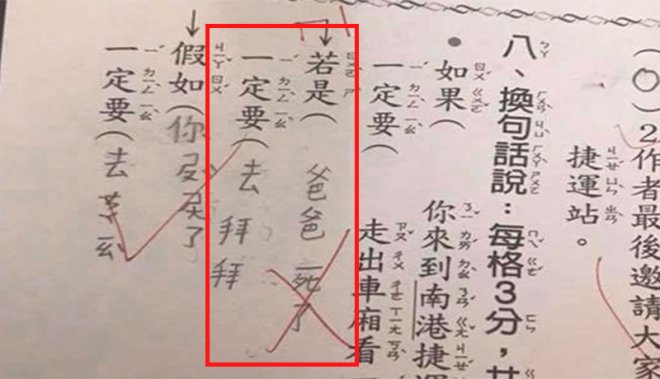 (○)2作者最後邀請大家
捷運站。
八、換句話說：每格3分，
●如果(你來到南港捷運
一定要(走出車廂看
↓若是(爸爸死了
一定要(去拜拜
↓假如(你了
一定要(去